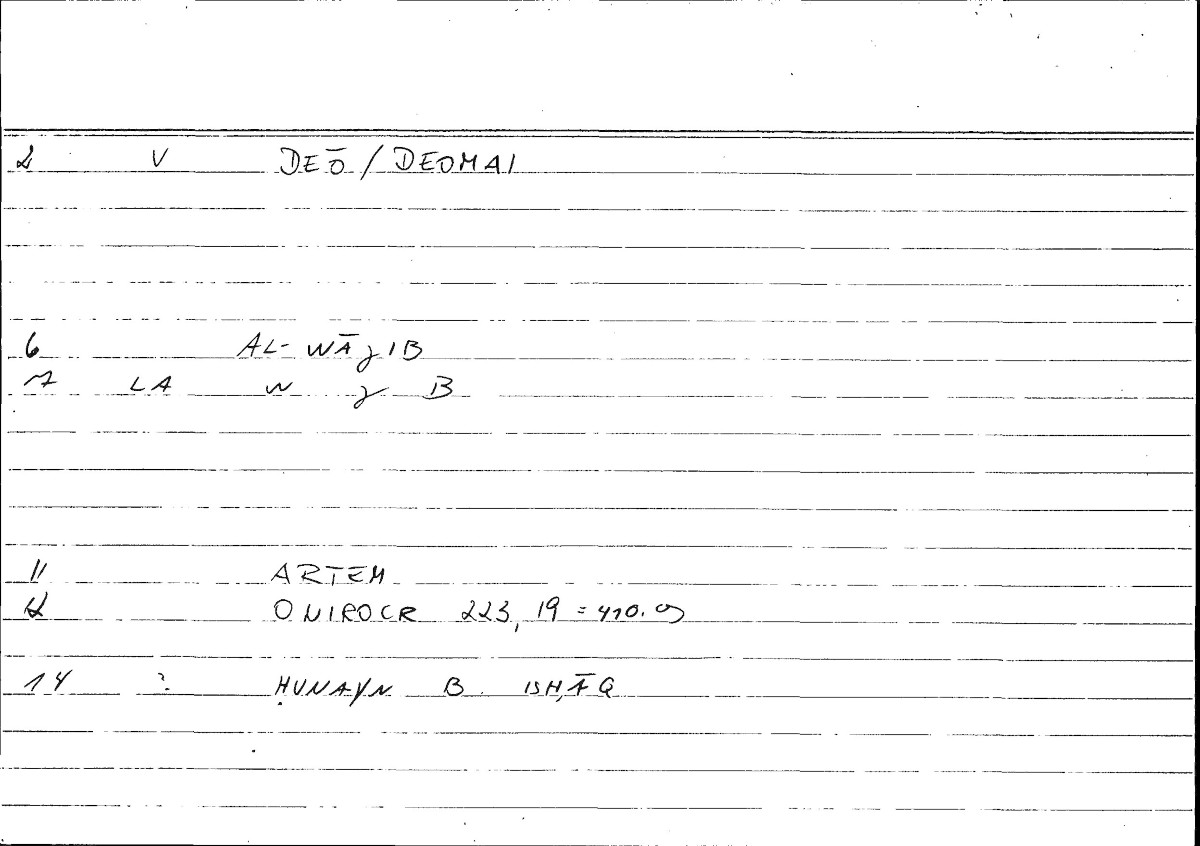 2 V DEŌ / DEOMAI
6 AL-WĀǧIB
7 LA W ǧ B
11 ARTEM
12 ONIROCR 223, 19 = 410.9
14 ? ḤUNAYN B. ISḤĀQ